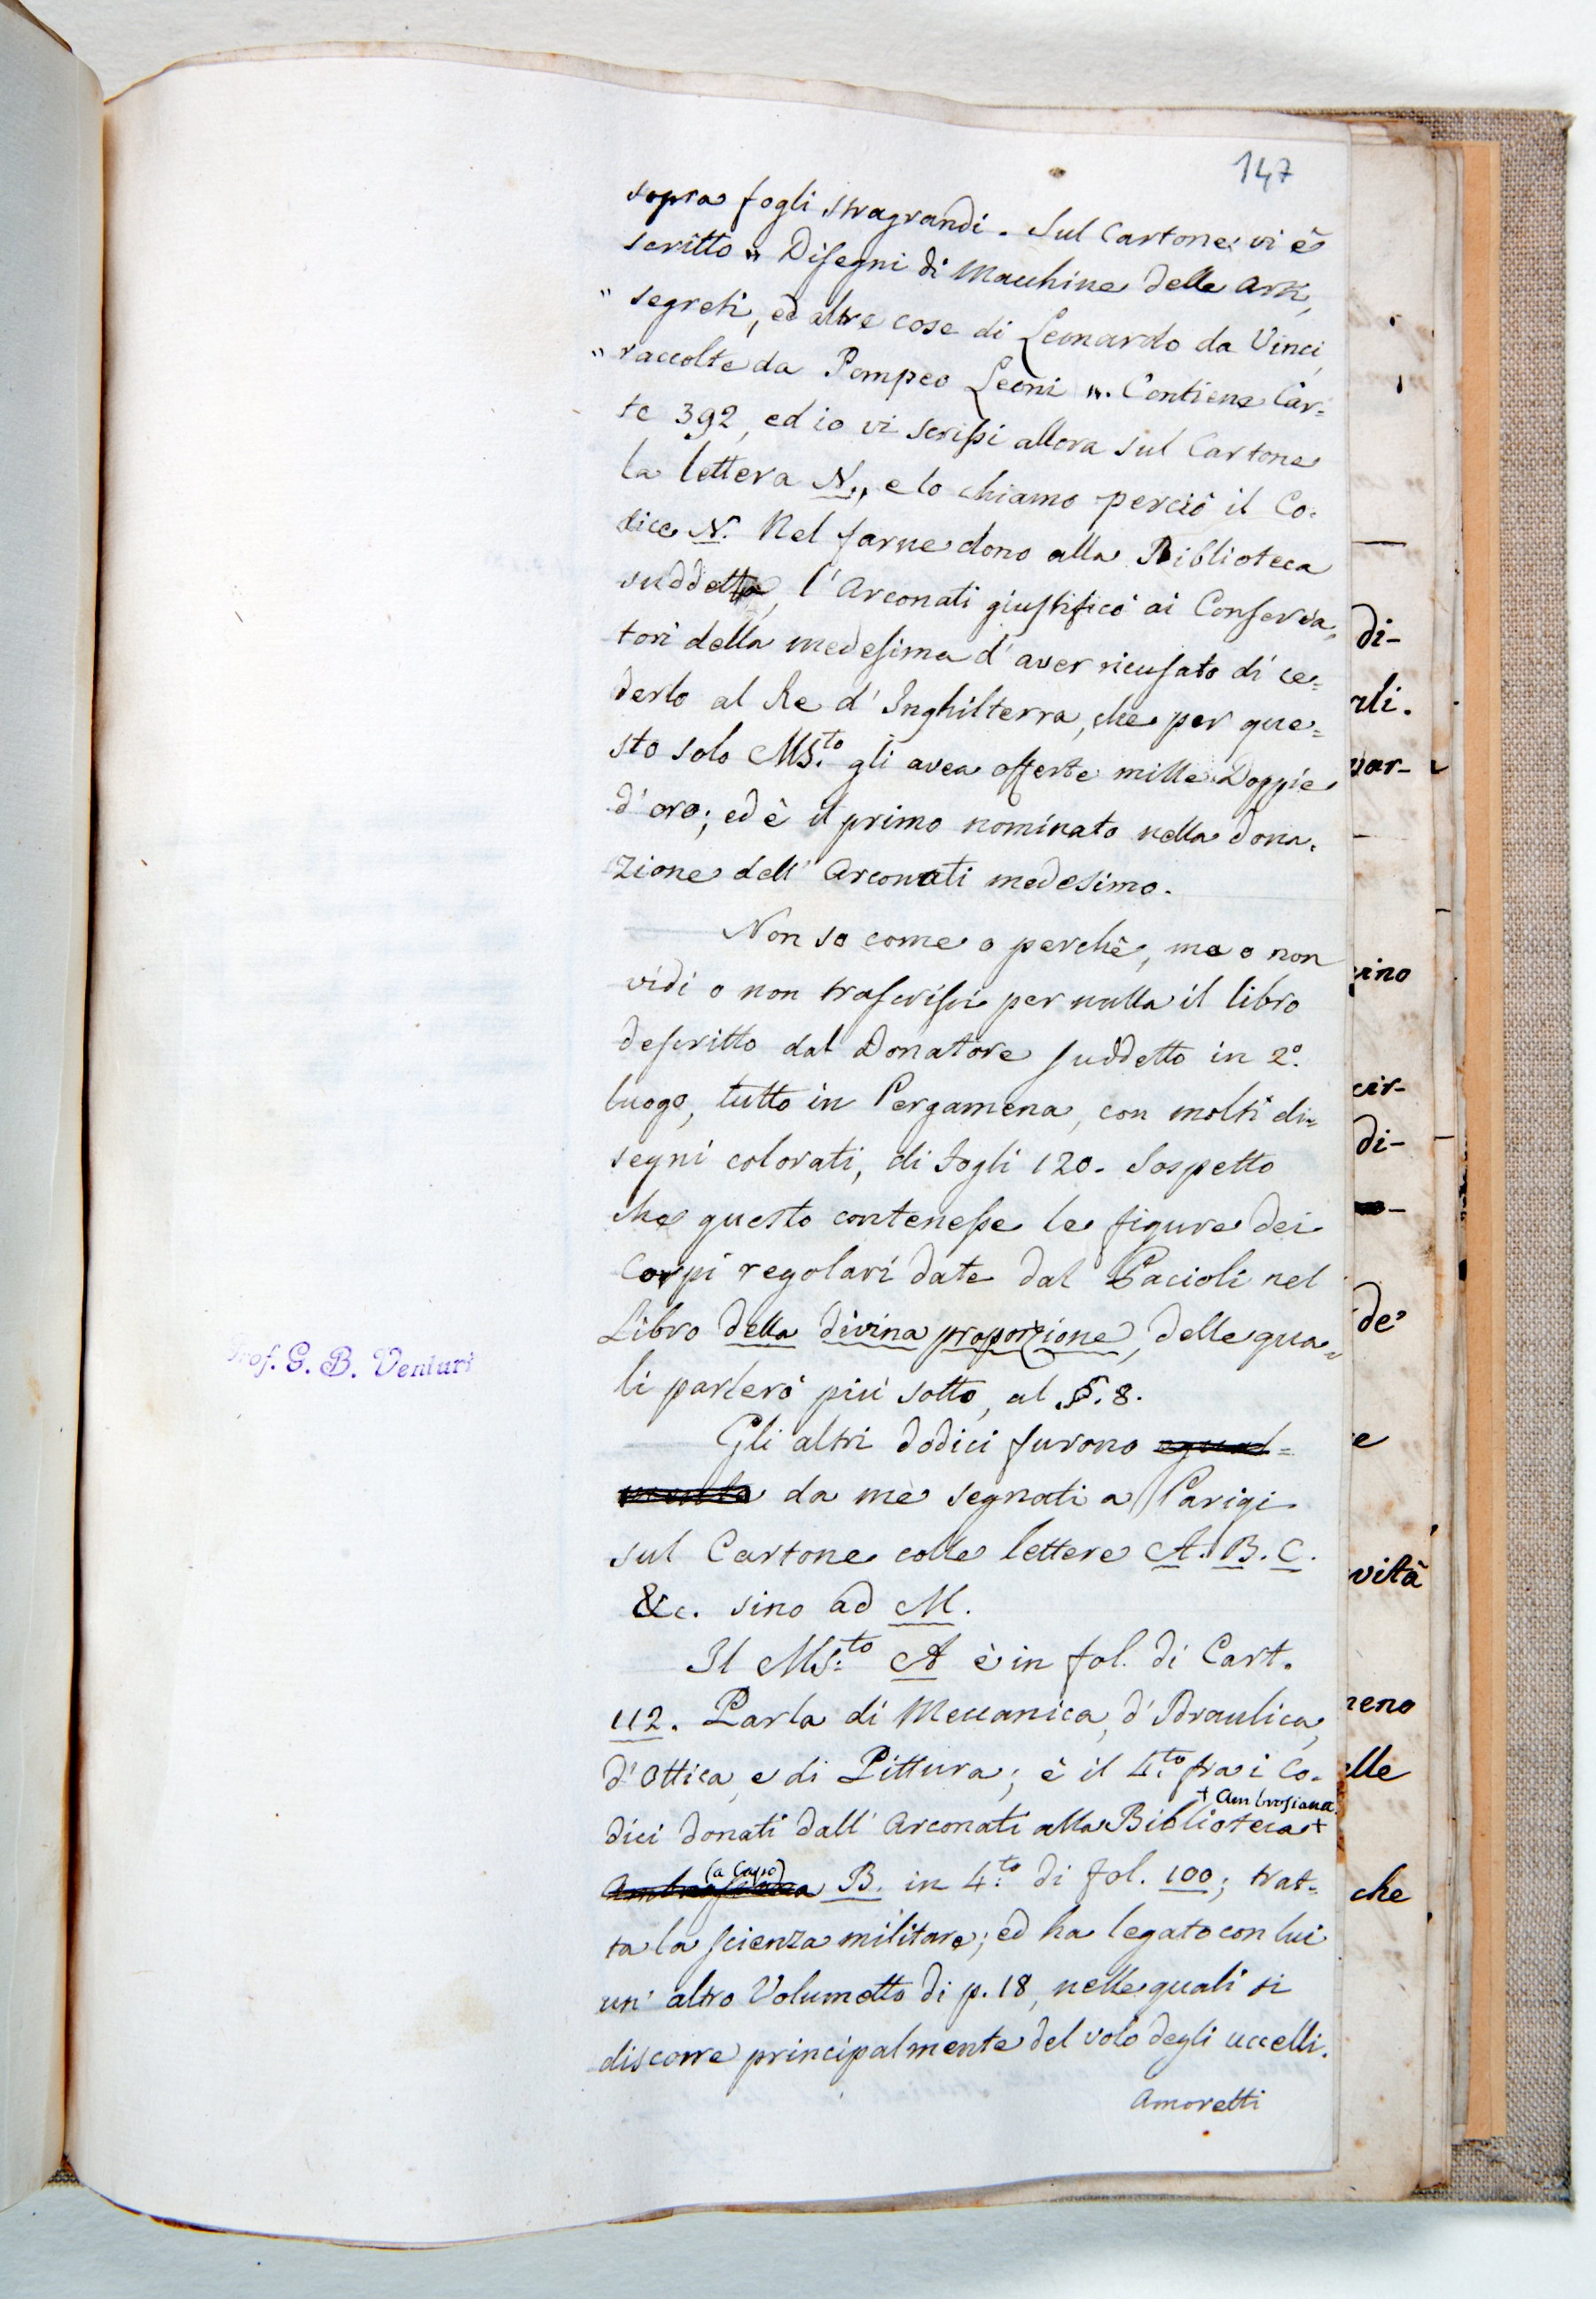 147
sopra fogli stragrandi. Sul Cartone vi è
scritto „ Disegni di Macchine delle Arti,
„ segreti, ed altre cose di Leonardo da Vinci,
„ raccolte da Pompeo Leoni „. Contiene Car=
te 392, ed io vi scrissi allora sul Cartone
la lettera N., e lo chiamo perciò il Co=
dice N. Nel farne dono alla Biblioteca
suddetta, l'Arconati giustificò ai Conserva=
tori della medesima d'aver ricusato di ce=
derlo al Re d'Inghilterra, che per que=
sto solo MS.to gli avea offerte mille Doppie
d'oro; ed è il primo nominato nella dona=
zione dell'Arconati medesimo.
Non so come o perchè, ma o non
vidi o non trascrissi per nulla il libro
descritto dal Donatore suddetto in 2.º
luogo, tutto in Pergamena, con molti di=
segni colorati, di fogli 120. Sospetto
che questo contenesse le figure dei
Corpi regolari date dal Pacioli nel
Libro della divina proporzione, delle qua=
li parlerò più sotto, al §. 8.
Gli altri dodici furono egual=
mente da me segnati a Parigi
sul Cartone colle lettere A. B. C.
&c. sino ad M.
Il MS.to A è in fol. di Cart.
112. Parla di Meccanica, d'Idraulica,
d'Ottica, e di Pittura; è il 4.to fra i Co=
+ Ambrosiana.
dici donati dall'Arconati alla Biblioteca +
(a Capo)
Ambrosiana B. in 4.to di fol. 100; trat=
ta la scienza militare; ed ha legato con lui
un' altro Volumetto di p. 18, nelle quali si
discorre principalmente del volo degli uccelli.
Amoretti
Prof. G. B. Venturi
di-
rli.
par-
cino
cir-
di-
de'
e
vità
meno
elle
che